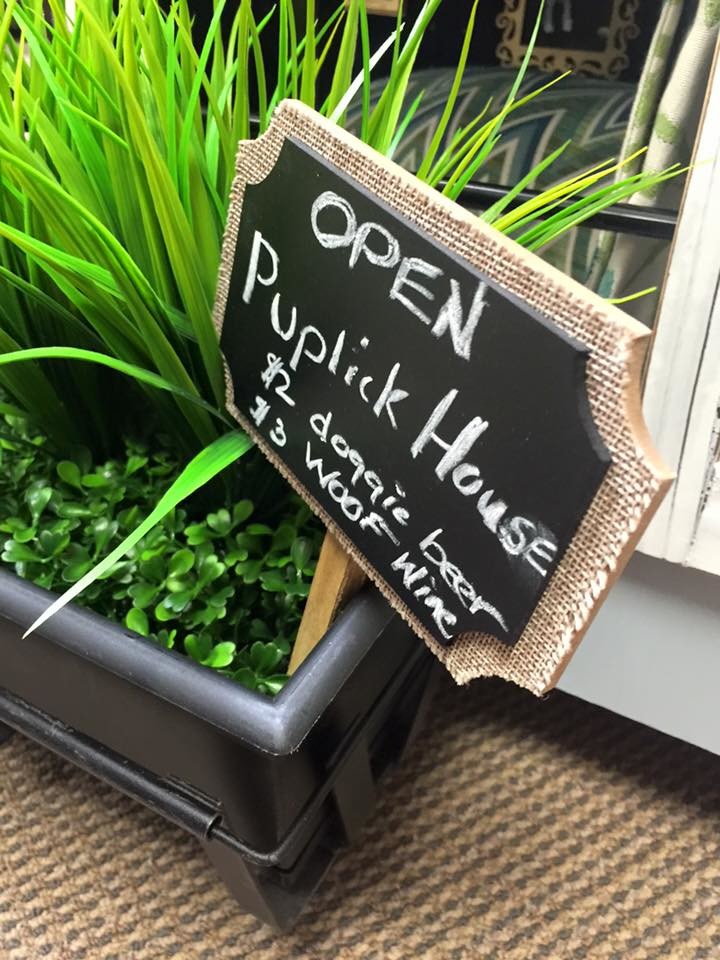 OPEN
Puplick House
$2 doggie beer
$3 WOOF Wine